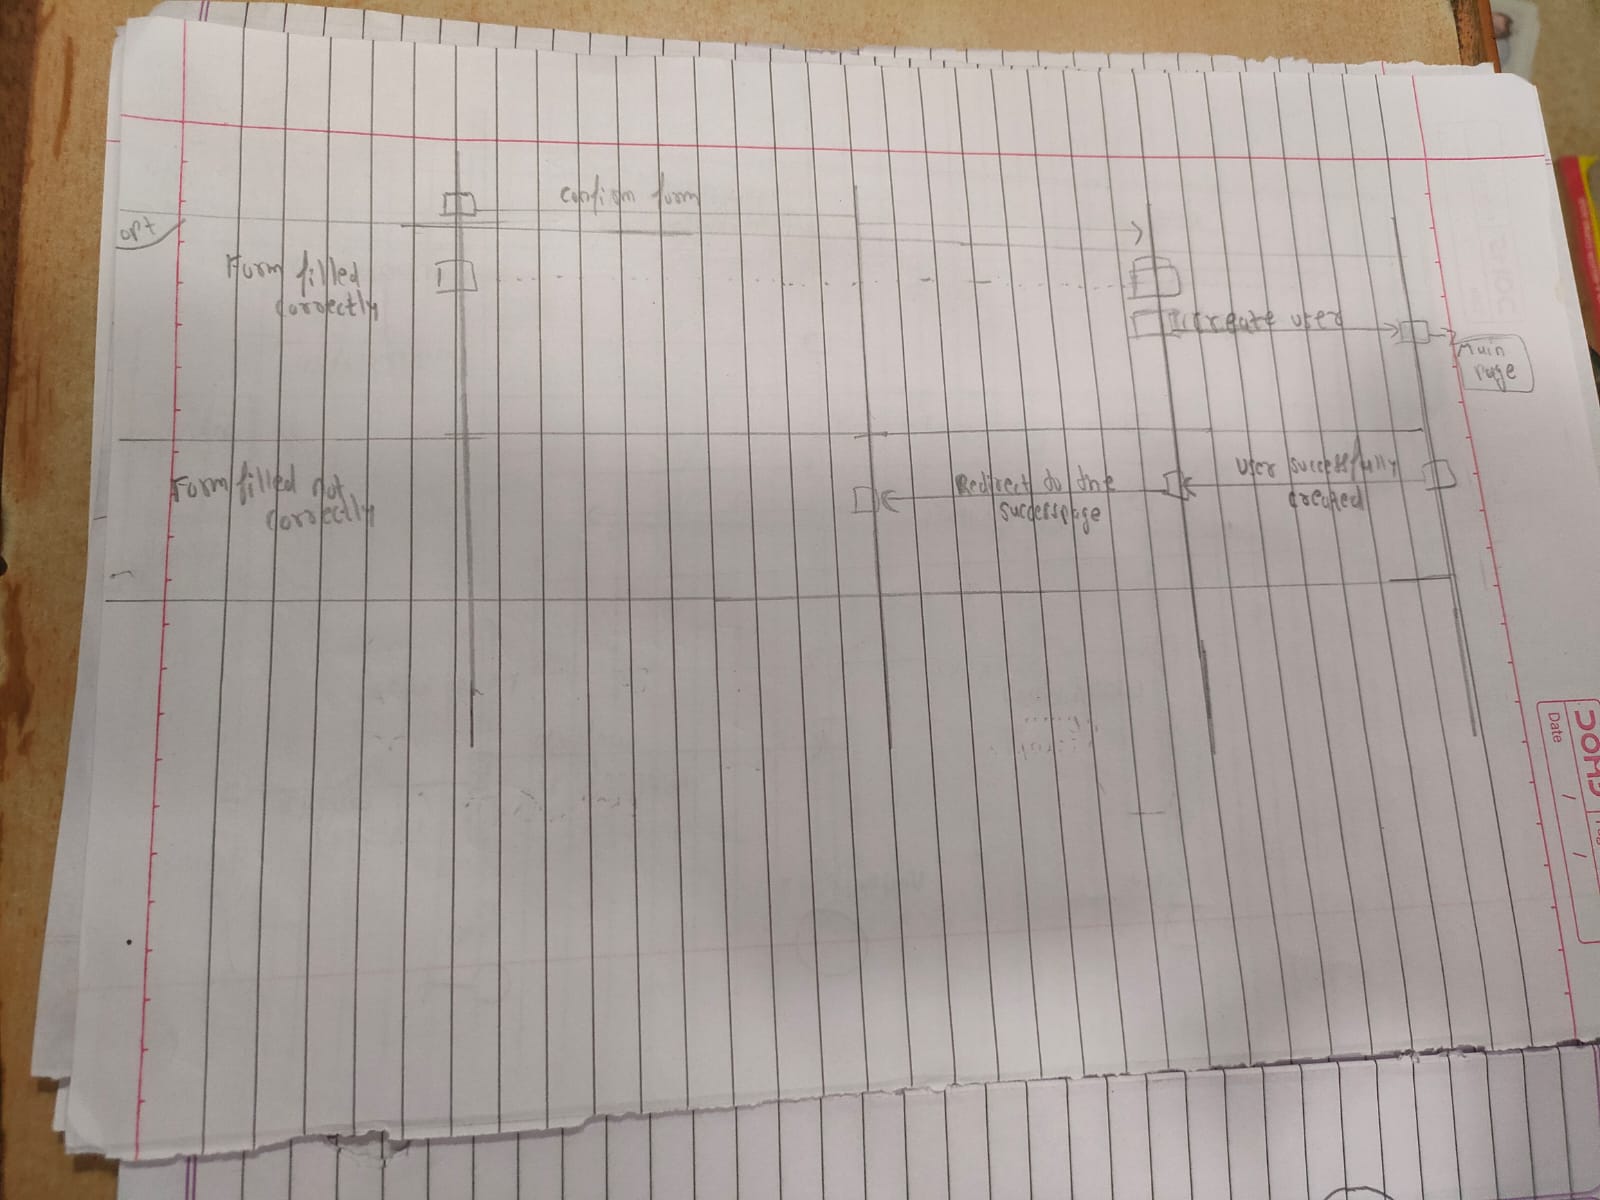 confirm form
opt
Form filled
correctly
create user
Main
Page
Form filled not
correctly
Redirect to the
successpage
User successfully
created
DOMS
Date
/ /